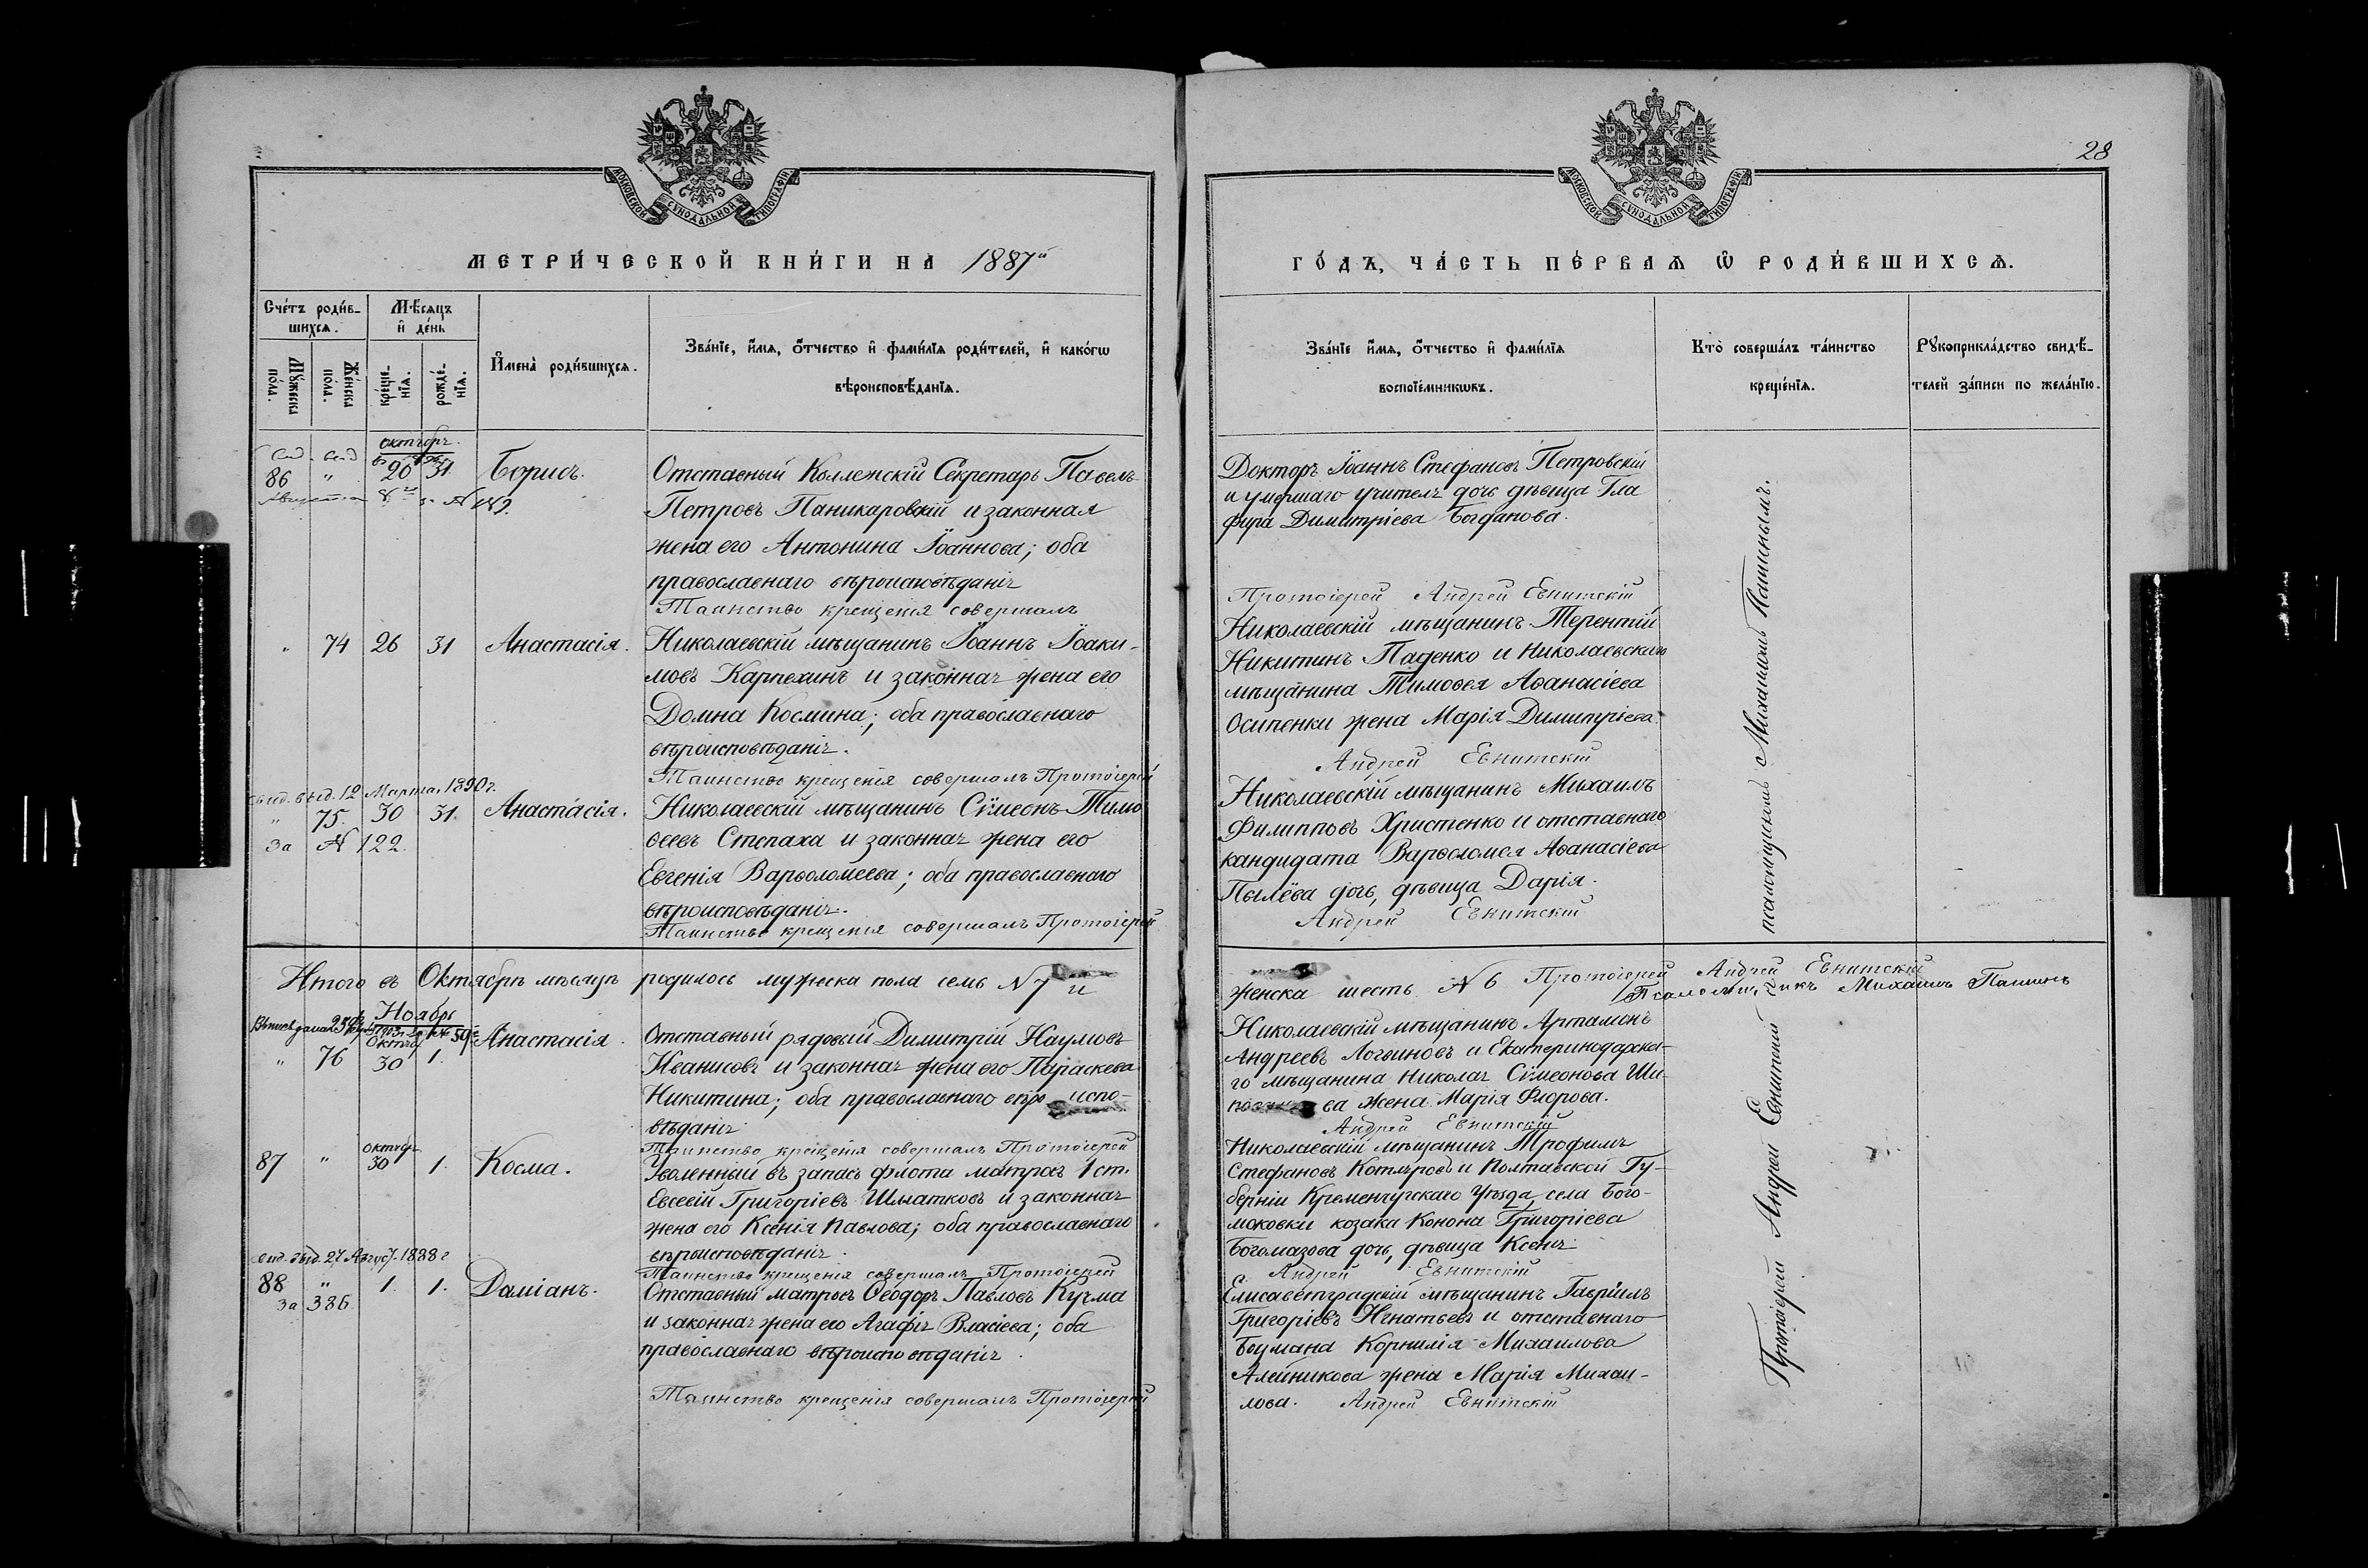 28
МОСКОВСКОЙ СѴНОДАЛЬНОЙ ТИПОГРАФІИ
МОСКОВСКОЙ СѴНОДАЛЬНОЙ ТИПОГРАФІИ
МЕТРИ́ЧЕСКОЙ КНИ́ГИ НА 1887й
ГО́ДЪ, ЧА́СТЬ ПЕ́РВАЯ Ѡ РОДИ́ВШИХСЯ.
Сче́тъ роди́в-
шихся.
Мѣ́сяцъ
и҆ де́нь
Мꙋ́жеска
по́ла.
Же́нска
по́ла.
креще́-
нїѧ.
рожде́-
нїѧ.
И҆мена̀ роди́вшихся.
Зва́нїе, и҆́мя, ѻ҆́тчество и҆ фами́лїя роди́телей, и҆ како́гѡ
вѣроисповѣ́данїя.
Зва́нїе и҆́мя, ѻ҆́тчество и҆ фами́лїя
воспрїе́мникѡвъ.
Кто̀ соверша́лъ та́инство
креще́нїя.
Рꙋкоприкла́дство свидѣ́-
телей за́писи по жела́нїю.
октябрь.
86 " 20 31 Борисъ.
Отставный Коллежскій Секретарь Павелъ
Петровъ Паникаровскій и законная
жена его Антонина Іоаннова; оба
православнаго вѣроисповѣданія
Таинство крещенія совершалъ
Докторъ Іоаннъ Стефановъ Петровскій
и умершаго учителя дочь дѣвица Гла
фира Димитріева Богданова.
Протоіерей Андрей Евнитскій
" 74 26 31 Анастасія.
Николаевскій мѣщанинъ Іоаннъ Іоаки-
мовъ Карпехинъ и законная жена его
Домна Космина; оба православнаго
вѣроисповѣданія.
Таинство крещенія совершалъ Протоіерей
Николаевскій мѣщанинъ Терентій
Никитинъ Паденко и Николаевскаго
мѣщанина Тимоѳея Аѳанасіева
Осипенки жена Марія Димитріева.
Андрей Евнитскій
Свид. выд. 12 Марта 1890 г.
" 75. 30 31. Анастасія.
за № 122.
Николаевскій мѣщанинъ Сѵмеонъ Тимо
ѳеевъ Степаха и законная жена его
Евгенія Варѳоломеева; оба православнаго
вѣроисповѣданія.
Таинство крещенія совершалъ Протоіерей
Николаевскій мѣщанинъ Михаилъ
Филипповъ Христенко и отставнаго
кандидата Варѳоломея Аѳанасіева
Пылёва дочь, дѣвица Дарія.
Андрей Евнитскій
псаломщикомъ Михаиломъ Пашинымъ.
Итого въ Октябрѣ мѣсяцѣ родилось мужеска пола семь № 7 и
женска шесть № 6 Протоіерей Андрей Евнитскій
Псаломщикъ Михаилъ Пашинъ
Ноябрь
Октяб.
" 76 30 1. Анастасія.
Отставный рядовой Димитрій Наумовъ
Иванисовъ и законная жена его Параскева
Никитина; оба православнаго вѣро испо-
вѣданія
Таинство крещенія совершалъ Протоіерей
Николаевскій мѣщанинъ Артамонъ
Андреевъ Логвиновъ и Екатеринодарска-
го мѣщанина Николая Сѵмеонова
ва жена Марія Флорова.
Андрей Евнитскій
октябр.
87 " 30 1. Косма.
Уволенный въ запасъ флота матросъ 1 ст.
Евсевій Григоріевъ Шматковъ и законная
жена его Ксенія Павлова; оба православнаго
вѣроисповѣданія.
Таинство крещенія совершалъ Протоіерей
Николаевскій мѣщанинъ Трофимъ
Стефановъ Котляровъ и Полтавской Гу-
берніи Кременчугскаго Уѣзда, села Бого-
моковки козака Конона Григоріева
Богомазова дочь, дѣвица Ксенія
Андрей Евнитскій
свид. выд. 27 Август. 1888 г
88 " 1. 1. Даміанъ.
за 386.
Отставный матросъ Ѳеодоръ Павловъ Кучма
и законная жена его Агафія Власіева; оба
православнаго вѣроисповѣданія.
Таинство крещенія совершалъ Протоіерей
Елисаветградскій мѣщанинъ Гавріилъ
Григоріевъ Игнатьевъ и отставнаго
Боцмана Корнилія Михаилова
Алейникова жена Марія Михаи-
лова. Андрей Евнитскій
Протоіерей Андрей Евнитскій